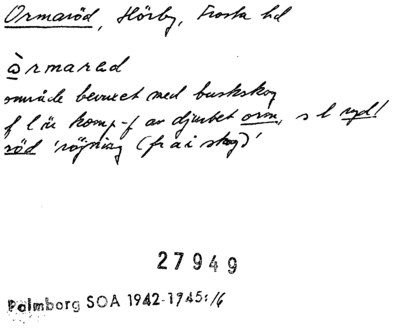 Ormaröd, Hörby, Frosta hd
òrmarəd
område bevuxet med buskskog
f l är komp-f av djurbet orm, s l ryd/
röd 'röjning (fr a i skog)'
27949
Palmborg SOA 1942-1945:/6